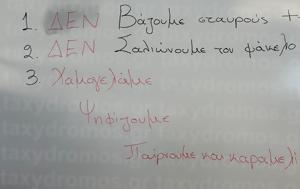 1. ΔΕΝ Βάζουμε σταυρούς +
2. ΔΕΝ Σαλιώνουμε τον φάκελο
3. Χαμογελάμε
Ψηφίζουμε
Παίρνουμε και καραμέλ